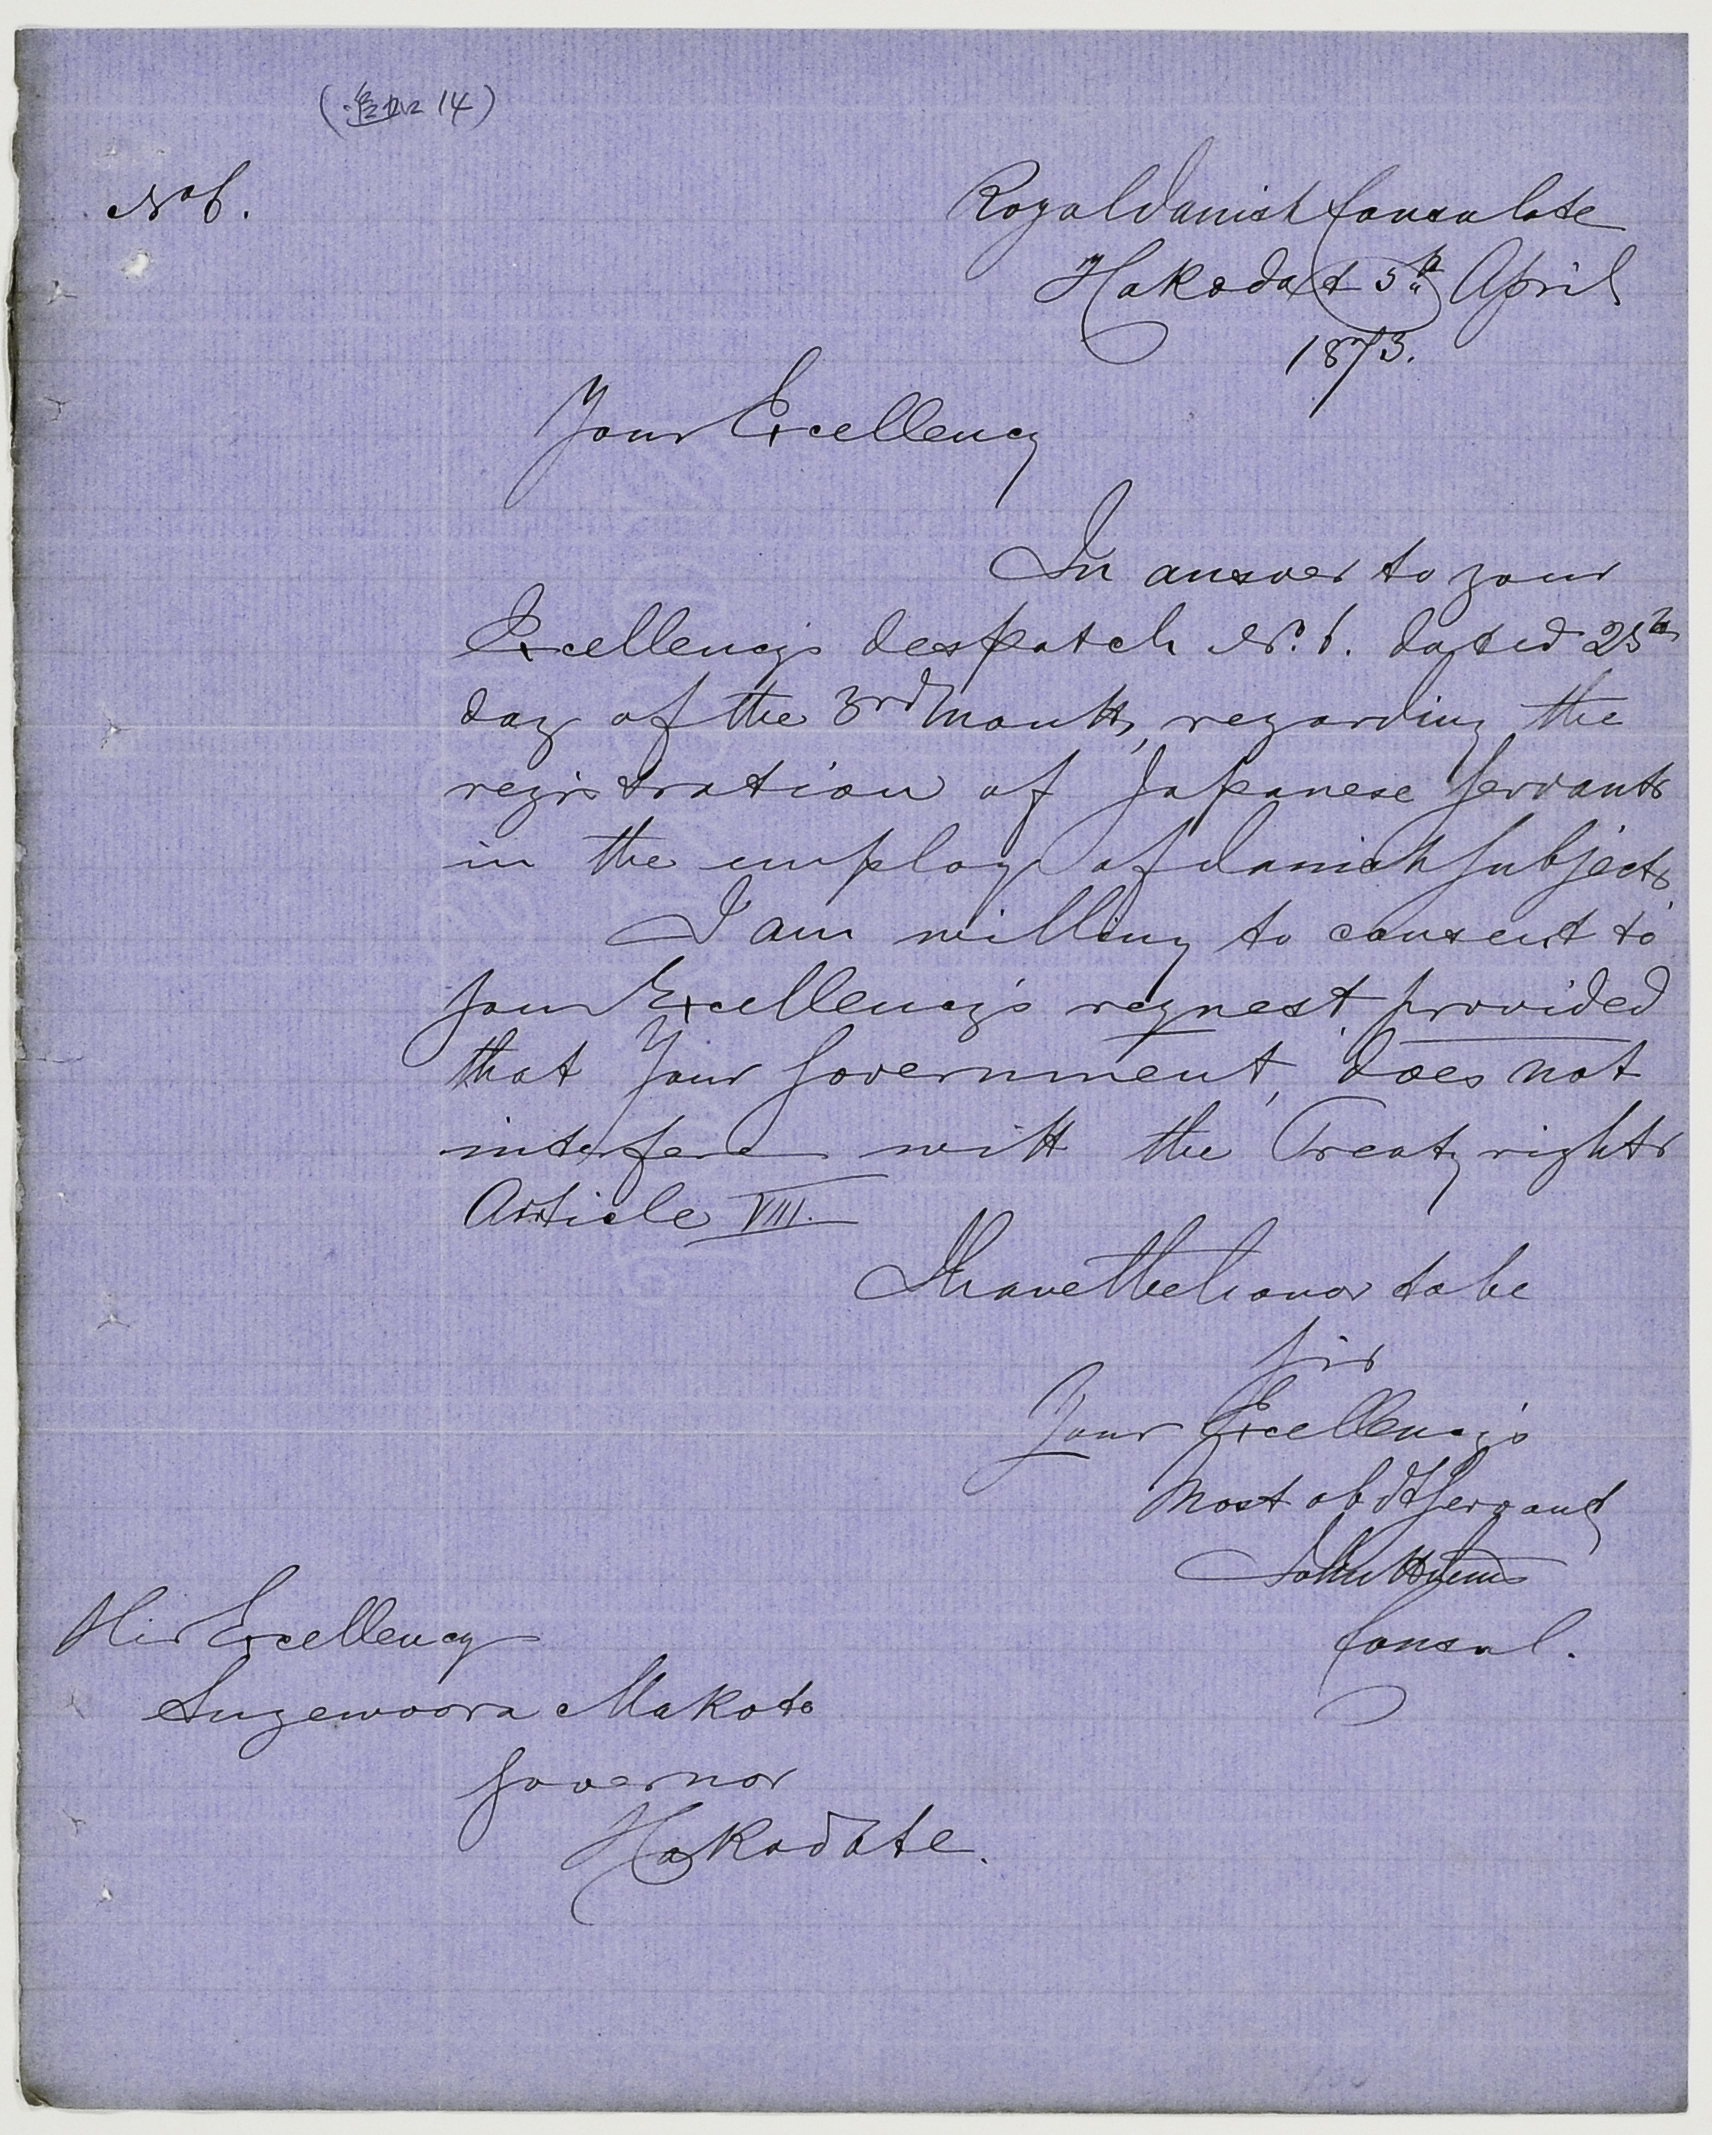 (追加 14)
No 6.
Royal Danish Consulate
Hakodat 5th April
1873.
Your Excellency
In answer to your
Excellency's despatch No. 6. dated 25th
day of the 3rd Month, regarding the
registration of Japanese Servants
in the employ of Danish Subjects.
I am willing to consent to
your Excellency's request, provided
that Your Government, does not
interfere with the Treaty rights
Article VIII.
I have the honor to be
Sir
Your Excellency's
Most obdt Servant
John
Consul.
His Excellency
Sugewoora Makoto
Governor
Hakodate.